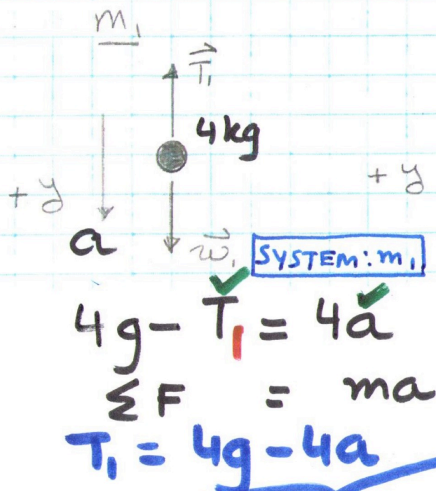 m₁
T⃗₁
4kg
+y
+y
a
w⃗₁
SYSTEM: m₁
4g - T₁ = 4a
ΣF = ma
T₁ = 4g - 4a